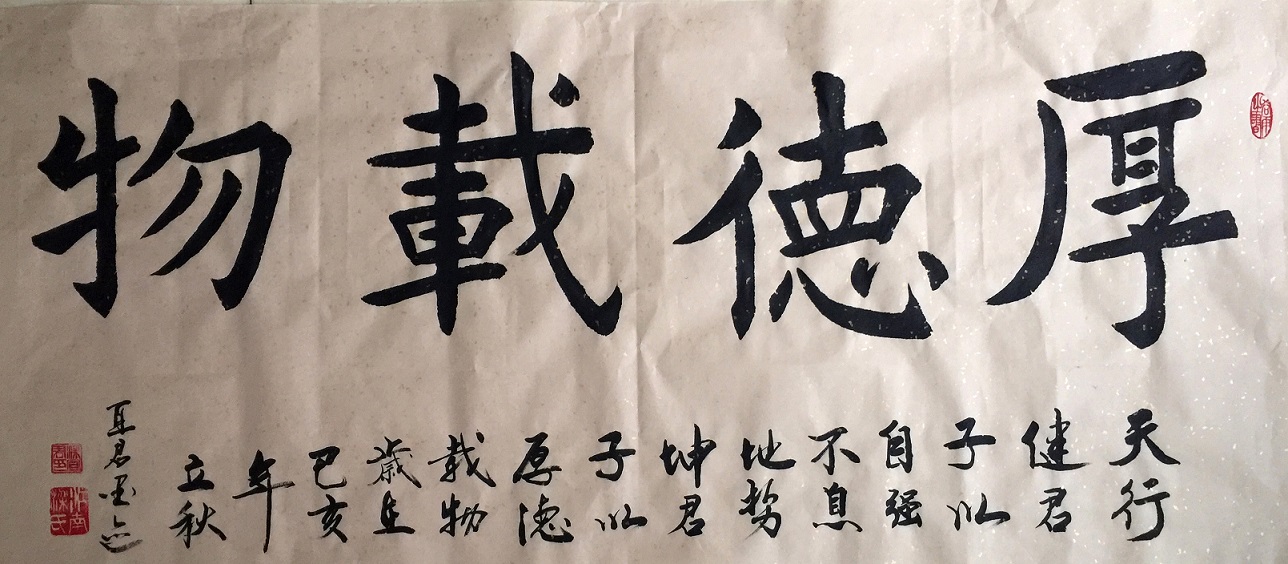 厚德載物
天行
健君
子以
自强
不息
地势
坤君
子以
厚德
载物
歲在
己亥
年
立秋
君墨迹